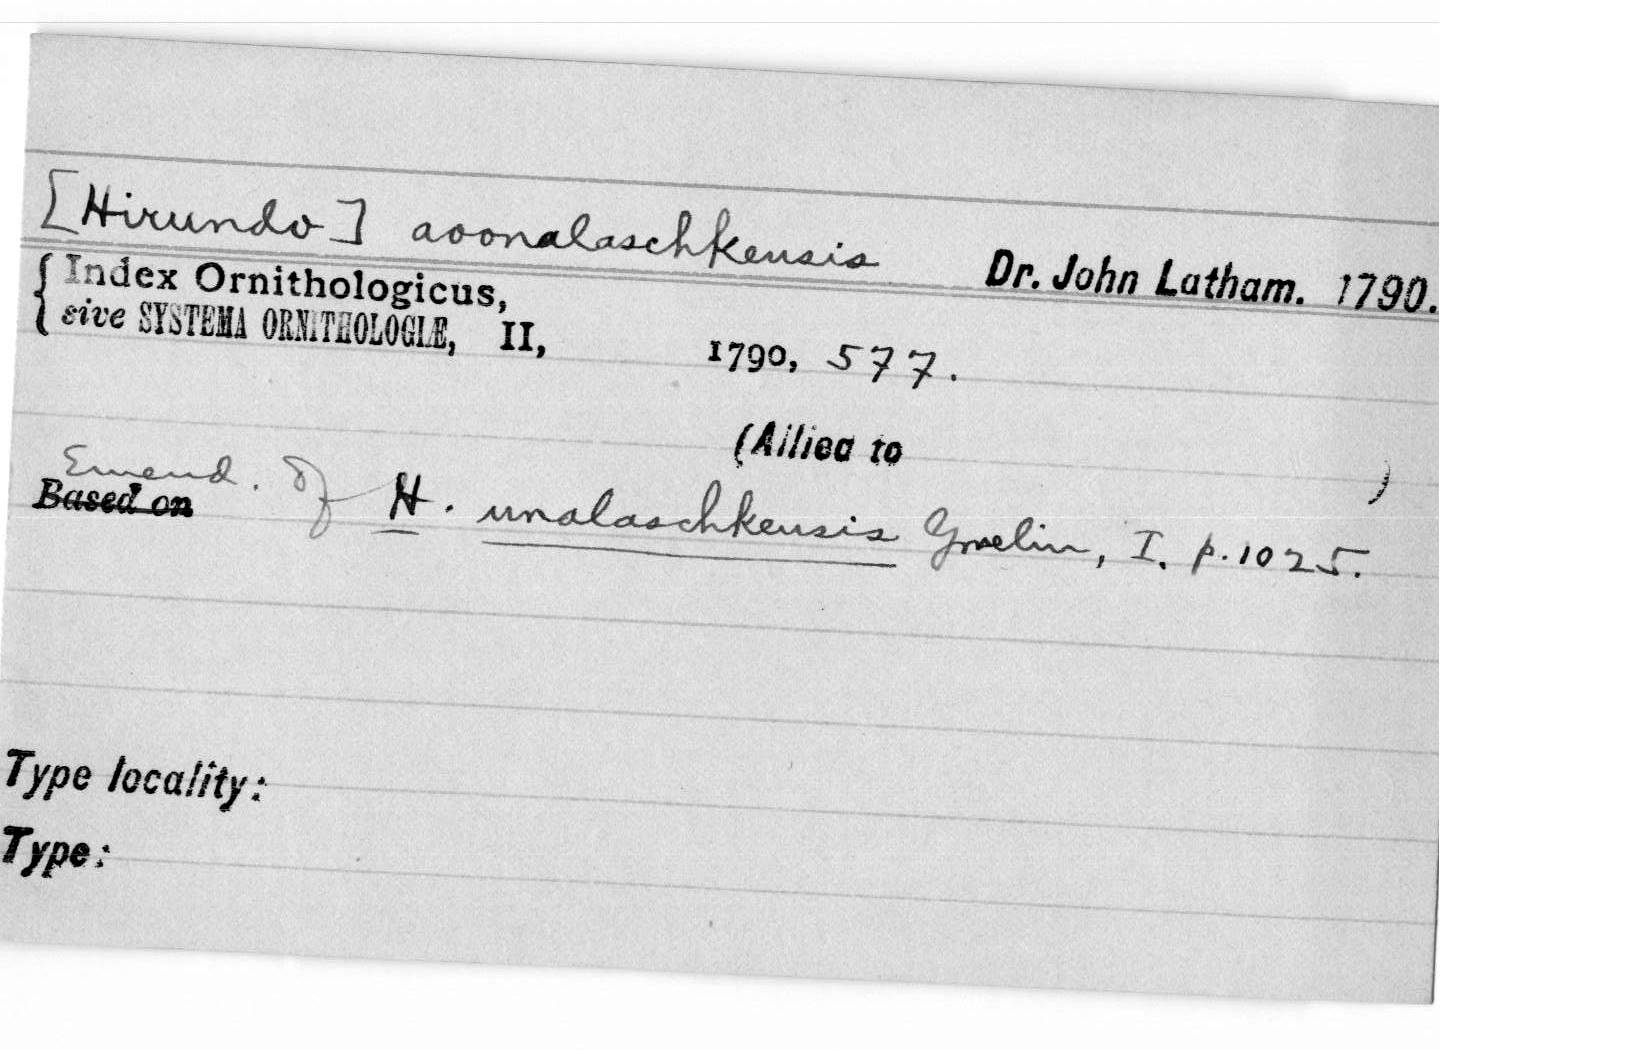 [Hirundo] aoonalaschkensis Dr. John Latham. 1790.
Index Ornithologicus,
sive SYSTEMA ORNITHOLOGIÆ, II, 1790, 577.
(Allied to )
Emend. of H. unalaschkensis Gmelin, I. p. 1025.
Based on
Type locality:
Type: